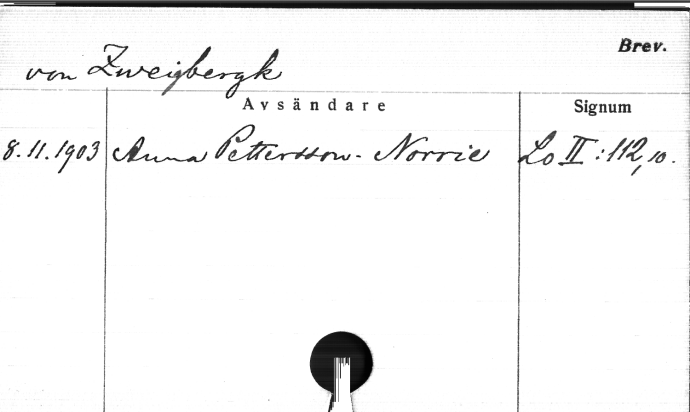 Brev.
von Zweigbergk
Avsändare Signum
8.11.1903 Anna Pettersson-Norrie Lo II:112,10.